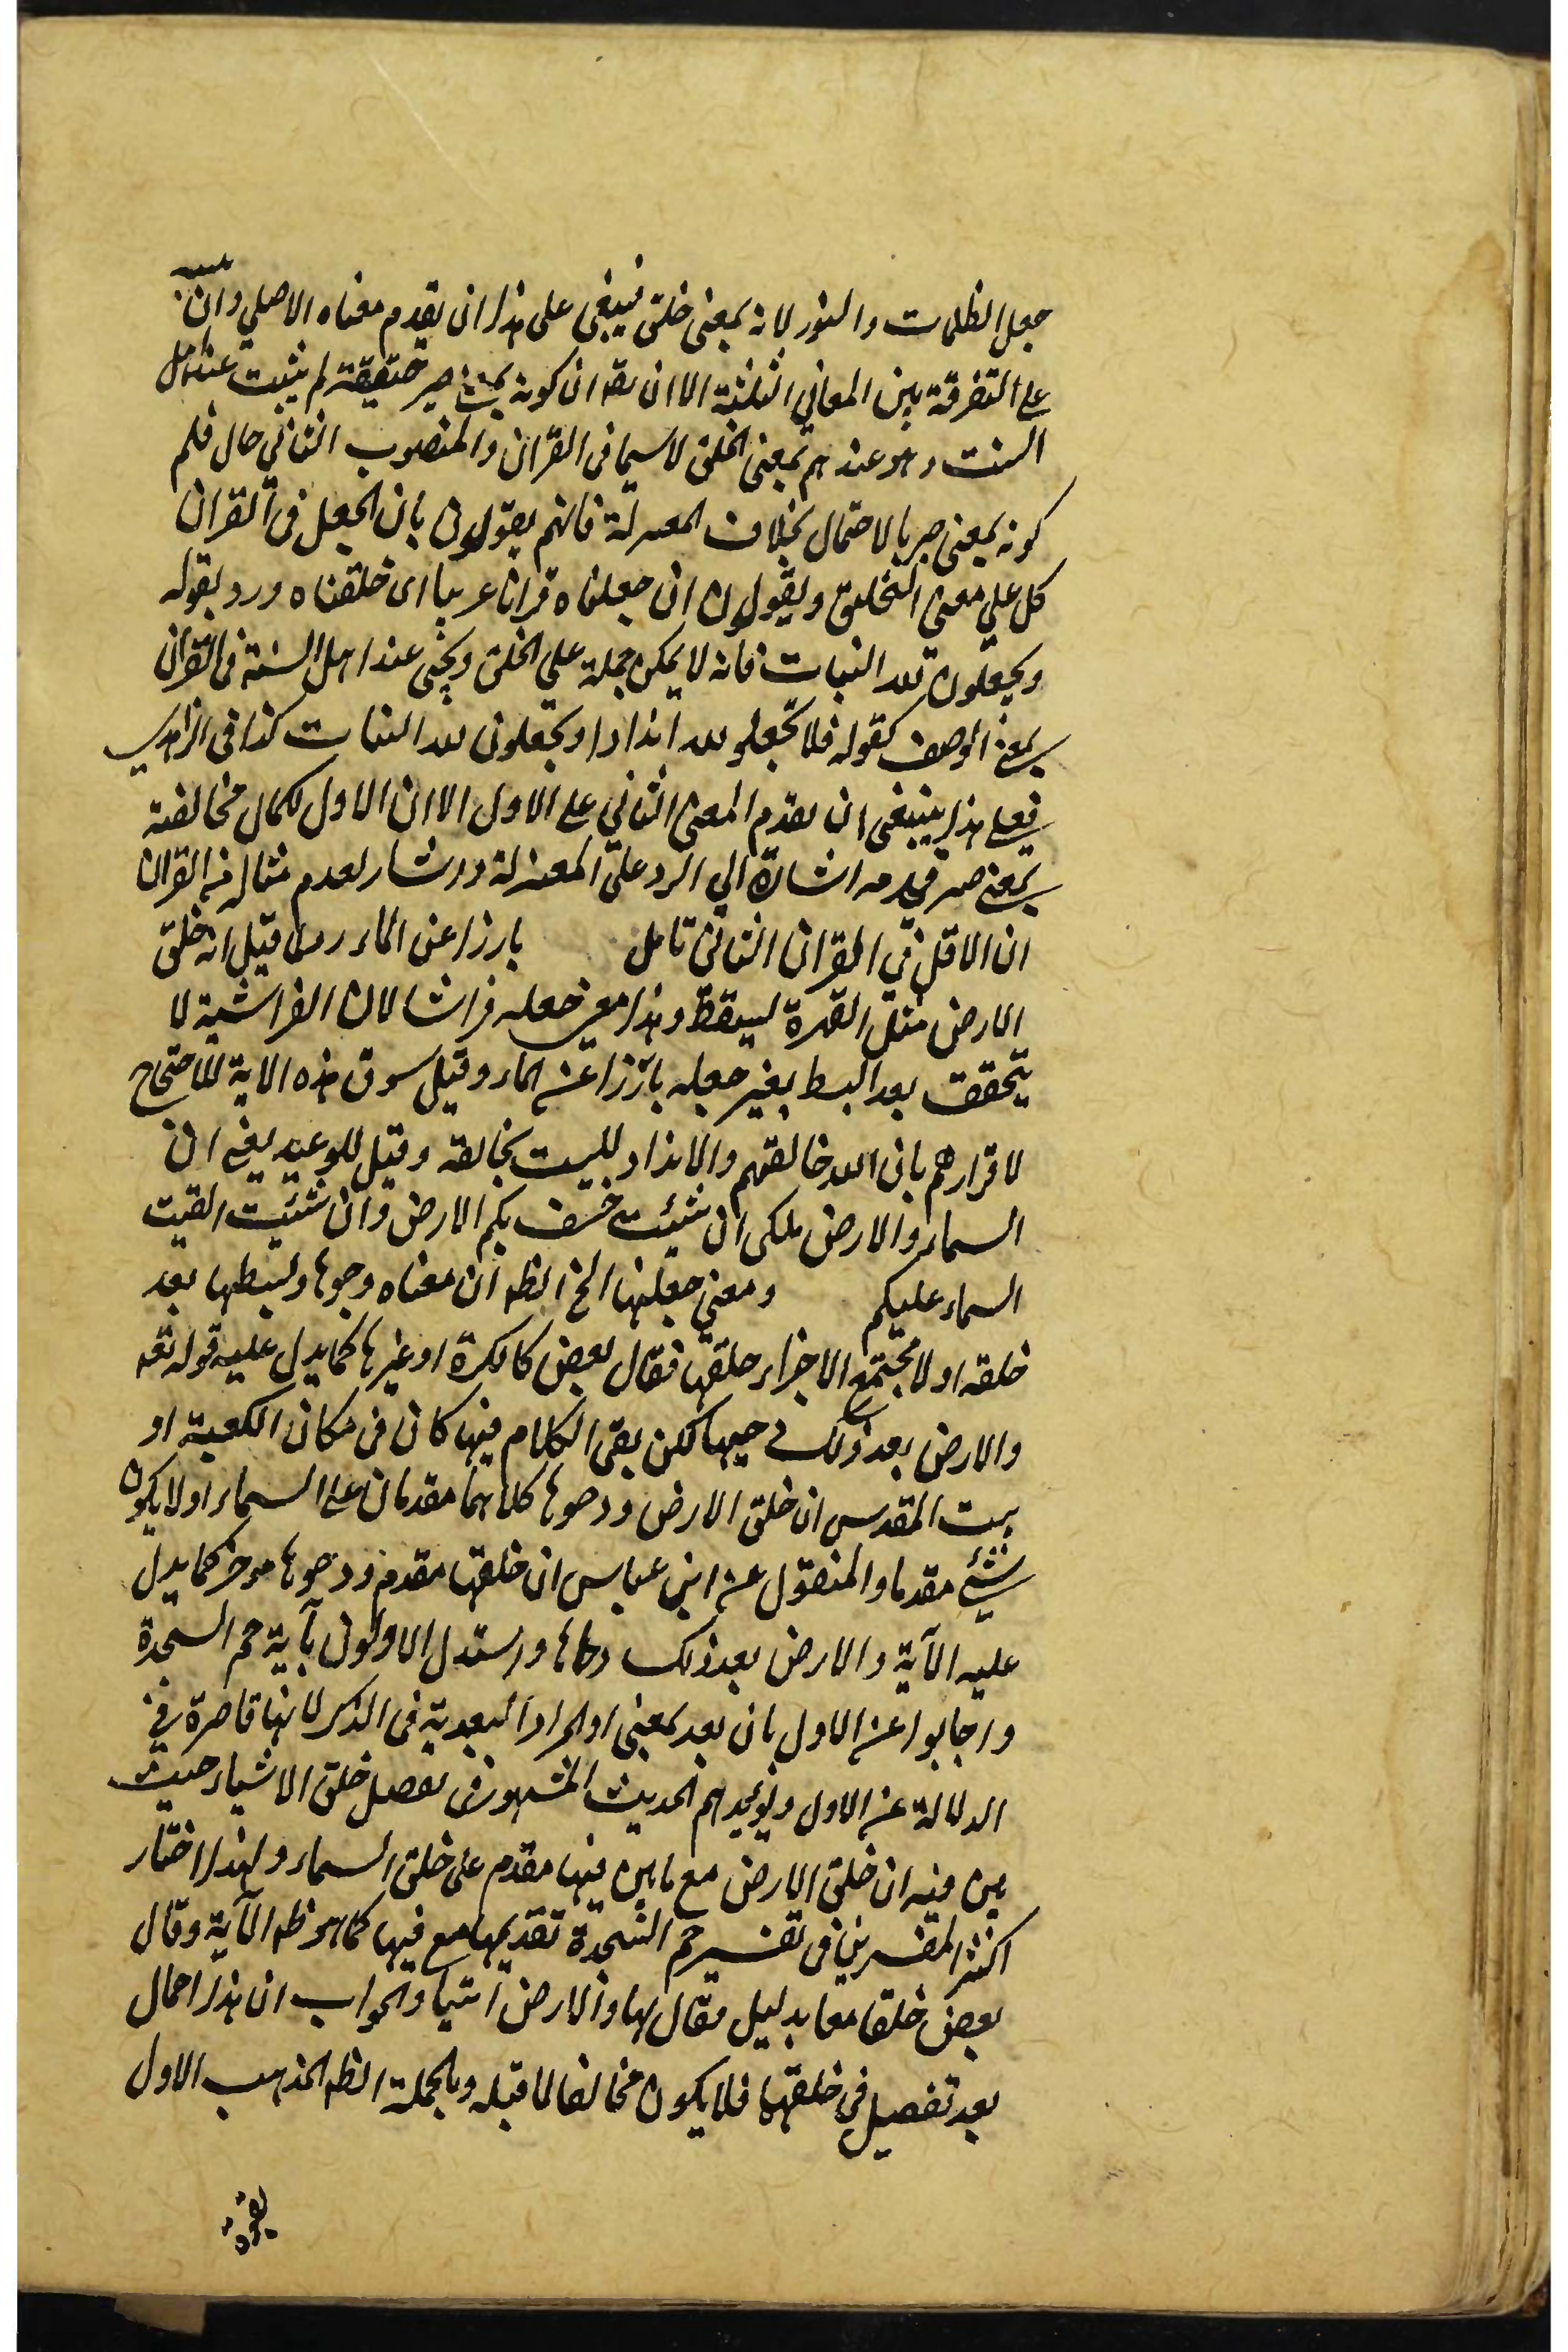 جعل الظلمات والنور لانه بمعنى خلق فينبغى على هذا ان يقدم معناه الاصلي وان
على التفرقة بين المعاني الثلثة الا ان يقه ان كونه بمعنى صير حقيقة لم يثبت عند اهل
السنت وهو عندهم بمعنى الخلق لا سيما فى القران والمنصوب الثاني حال فلم
كونه بمعنى صير بالاحتمال بخلاف المعتزلة فانهم يقولون بان الجعل فى القران
كل على معنى التخليق ويقولون ان جعلناه قرانا عربيا اى خلقناه ورد بقوله
ويجعلون لله البنات فانه لا يمكن حمله على الخلق ويجئى عند اهل السنة فى القران
بمعنى الوصف كقوله فلا تجعلو لله اندادا ويجعلون لله البنات كذا فى الزاهدى
فعلى هذا ينبغى ان يقدم المعنى الثاني على الاول الا ان الاول لكمال مخالفته
بمعنى صير قدمه اشارة الي الرد على المعتزلة واشار لعدم مثاله فى القران
ان الاقل فى القران الثانى تامل بارزا عن الماء وما قيل انه خلق
الارض مثل القهرة ليبقظ وهذا معنى جعله فراشا لان الفراشية لا
يتحقق بعد البسط بغير جعله بارزا عن الماء وقيل سوق هذه الاية للاحتجاج
لاقرارهم بان الله خالقهم والانداد لليست بخالقه وقيل للوعيد يعنى ان
السماء والارض ملكى ان شيئت خسف بكم الارض وان شئيت القيت
السماء عليكم ومعنى جعلها الخ الظه ان معناه وجوها وبسطها بعد
خلقه اولا مجتمع الاجزاء خلقها فقال بعض كالكرة او غيرها كما يدل عليه قوله تعه
والارض بعد ذلك دحيها لكن بقى الكلام فيها كان فى مكان الكعبة او
بيت المقدس ان خلق الارض ودحوها كلاهما مقدمان على السماء اولا يكون
شئ مقدما والمنقول عن ابن عباس ان خلقها مقدم ودحوها موخر كما يدل
عليه الآية والارض بعد ذلك دحاها واستدل الاولون بآية حم السجدة
واجابوا عن الاول بان بعد بمعنى او المراد البعدية فى الذكر لانها قاصرة فى
الدلالة عن الاول ويؤيدهم الحديث المشهور فى تفصل خلق الاشياء حيث
بين فيه ان خلق الارض مع ما بين فيها مقدم على خلق السماء ولهذا اختار
اكثر المفسرين فى تفسير حم السجدة تقديمها مع فيها كما هو ظه الآية وقال
بعض خلقا معا بدليل فقال لها والارض ائتيا والجواب ان هذا اجمال
بعد تفصيل فى خلقها فلا يكون مخالفا لما قبله وبالجملة الظه المذهب الاول